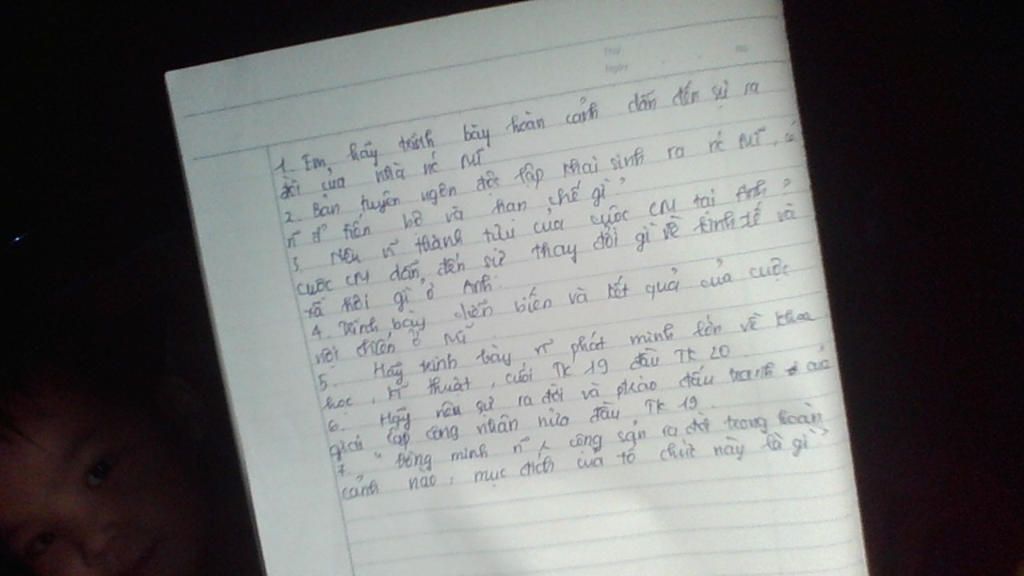 Thứ
No
Ngày
1. Em, hãy trình bày hoàn cảnh dẫn đến sự ra
đời của nhà nc Mĩ
2. Bản tuyên ngôn độc lập khai sinh ra nc Mĩ, có
n~ đ² tiến bộ và hạn chế gì?
3. Nêu n~ thành tựu của cuộc CM tại Anh?
cuộc CM dẫn đến sự thay đổi gì về kinh tế và
xã hội gì ở Anh.
4. Trình bày diễn biến và kết quả của cuộc
nội chiến ở Mĩ
5. Hãy trình bày n~ phát minh lớn về khoa
học, kĩ thuật, cuối TK 19 đầu TK 20
6. Hãy nêu sự ra đời và phào đấu tranh của
giai cấp công nhân nửa đầu TK 19
7. "Đồng minh n~ công sản ra đời trong hoàn
cảnh nào, mục đích của tổ chức này là gì?